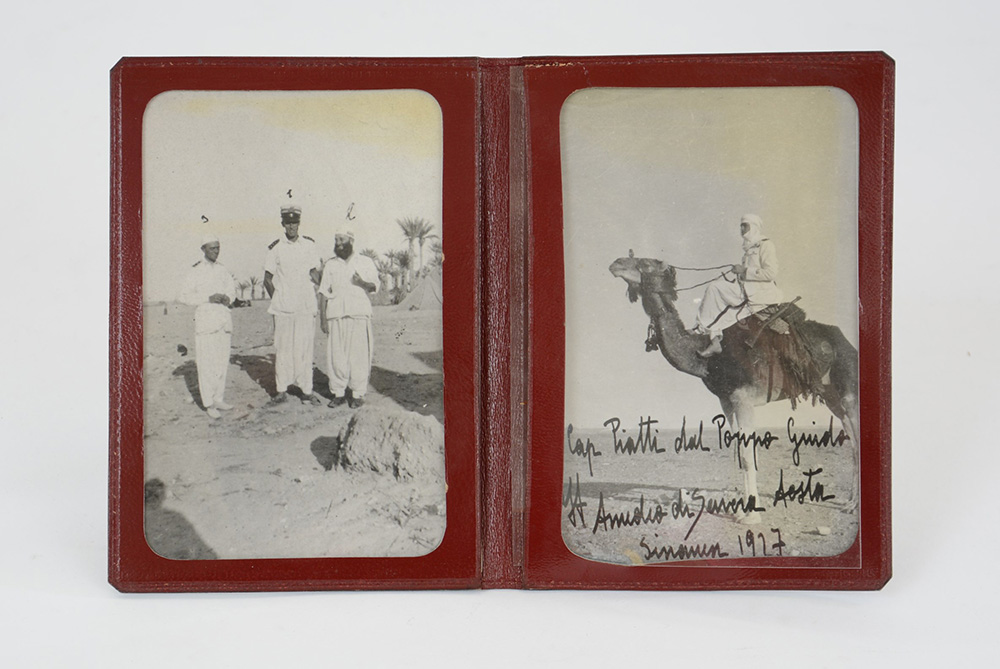 3
1
2
Cap Piatti dal Pozzo Guido
Amedeo di Savoia Aosta
Sinauen 1927